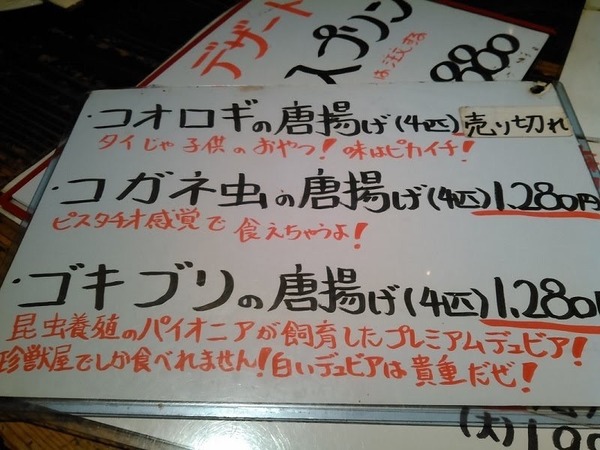 デザート
イプリン
880
・コオロギの唐揚げ(4匹)売り切れ
タイじゃ子供のおやつ!味はピカイチ!
・コガネ虫の唐揚げ(4匹)1,280円
ピスタチオ感覚で食えちゃうよ!
・ゴキブリの唐揚げ(4匹)1,280円
昆虫養殖のパイオニアが飼育したプレミアムデュビア!
珍獣屋でしか食べれません!白いデュビアは貴重だぜ!
(大)